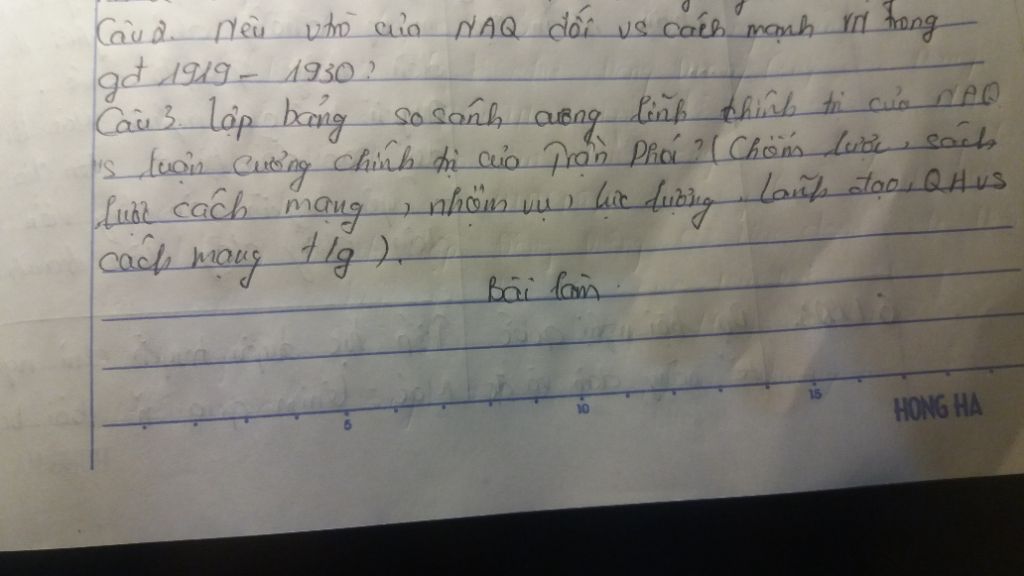 Câu 2. Nêu vtrò của NAQ đối vs cách mạnh VN trong
gđ 1919 - 1930?
Câu 3 lập bảng so sánh cương lĩnh chính trị của NAQ
vs luận cương chính trị của Trần Phú? (Chiến lược, sách
lược cách mạng, nhiệm vụ, lực lượng, lãnh đạo, QH vs
cách mạng t/g).
Bài làm
5 10 15
HONG HA